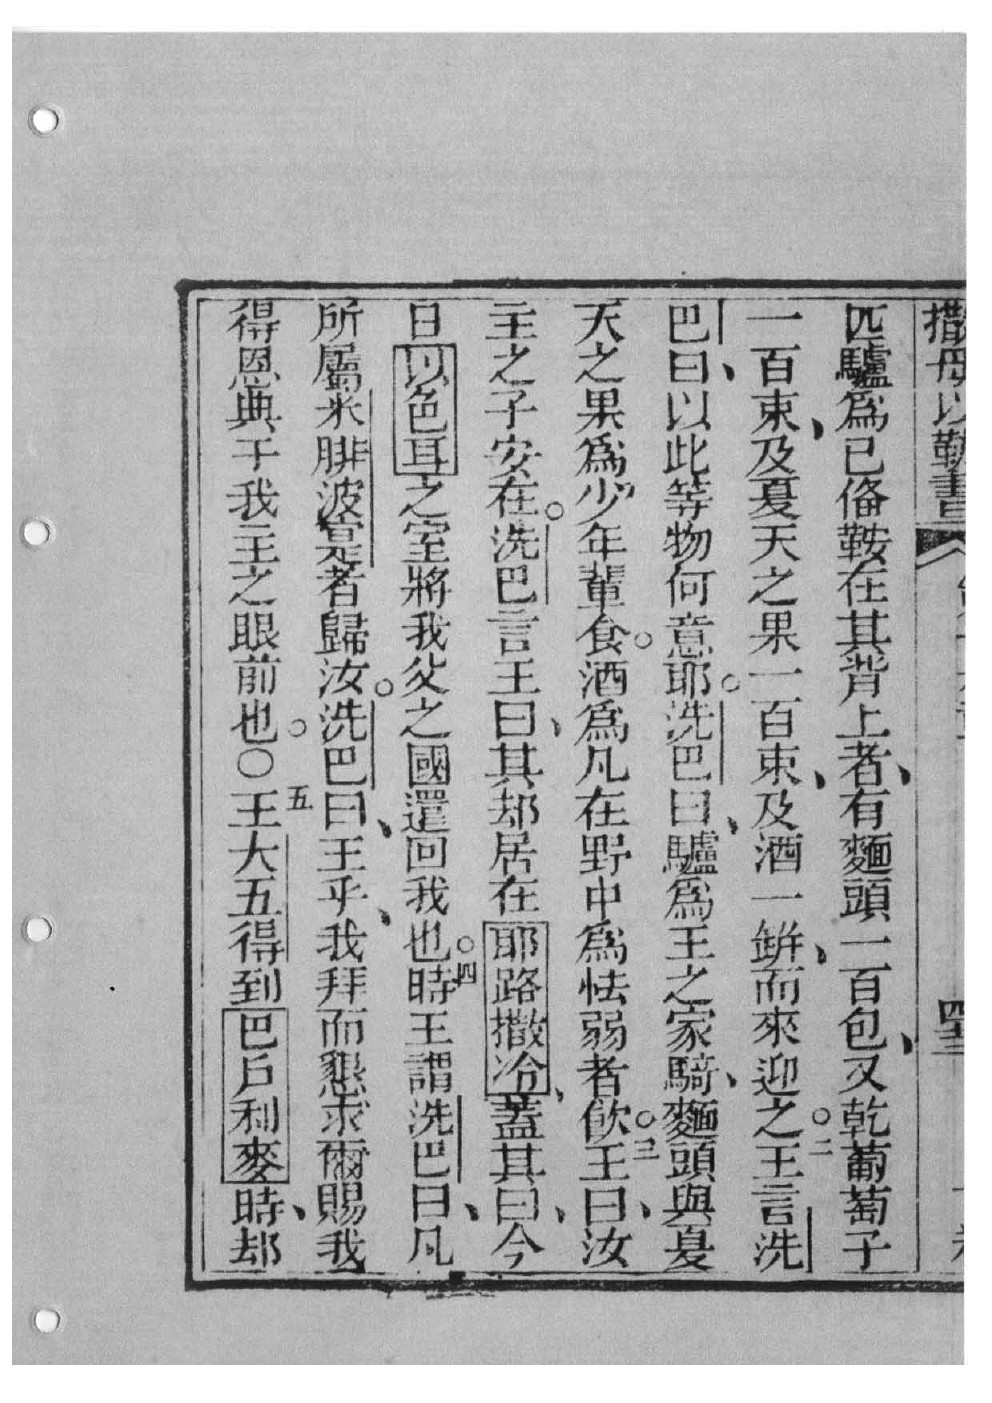 撒母以勒書
四十三
匹驢爲已俻鞍在其背上者、有麵頭一百包、又乾葡萄子
一百束、及夏天之果一百束、及酒一缾、而來迎之。二王言洗
巴曰、以此等物何意耶。洗巴曰、驢爲王之家騎、麵頭與夏
天之果爲少年輩食。酒爲凡在野中爲怯弱者飲。三王曰、汝
主之子安在。洗巴言王曰、其却居在耶路撒冷、蓋其曰、今
日以色耳之室將我父之國還回我也。四時王謂洗巴曰、凡
所屬米腓波寔者歸汝。洗巴曰、王乎、我拜而懇求爾賜我
得恩典于我主之眼前也。〇五王大五得到巴戶利麥時、却